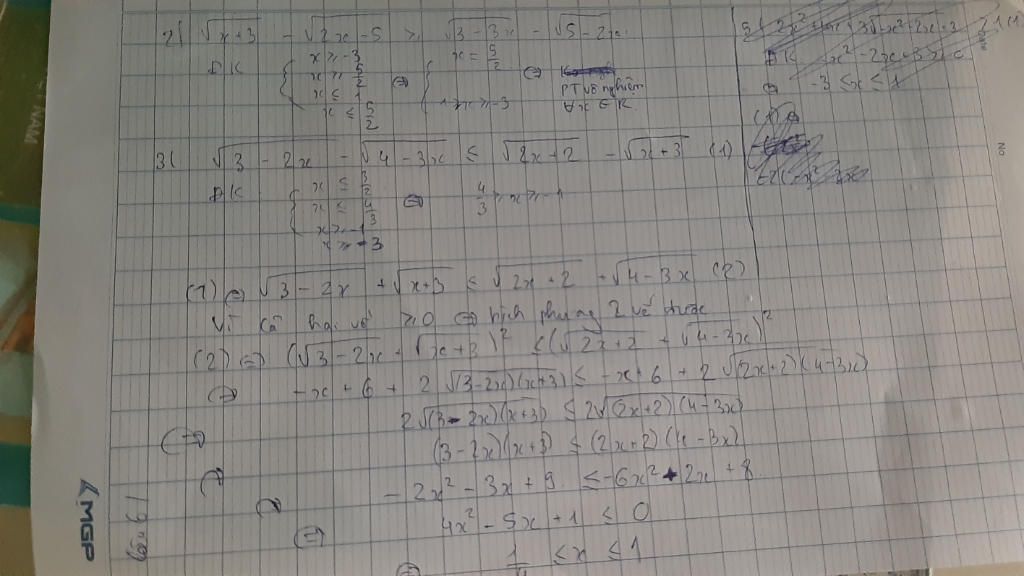 2( √(x+3) - √(2x-5) ≥ √(3-3x) - √(5-2x)
ĐK { x ≥ -3
x ≥ 5/2
x ≤ 1
x ≤ 5/2
⇔ { x = 5/2
1 ≥ x ≥ -3
⇔ PT vô nghiệm
∀x ∈ R
3( √(3-2x) - √(4-3x) ≤ √(2x+2) - √(x+3) (1)
ĐK { x ≤ 3/2
x ≤ 4/3
x ≥ -1
x ≥ -3
⇔ 4/3 ≥ x ≥ -1
(1) ⇔ √(3-2x) + √(x+3) ≤ √(2x+2) + √(4-3x) (2)
Vì cả hai vế ≥ 0 ⇔ bình phương 2 vế được
(2) ⇔ (√(3-2x) + √(x+3))² ≤ (√(2x+2) + √(4-3x))²
⇔ -x + 6 + 2√((3-2x)(x+3)) ≤ -x + 6 + 2√((2x+2)(4-3x))
⇔ 2√((3-2x)(x+3)) ≤ 2√((2x+2)(4-3x))
⇔ (3-2x)(x+3) ≤ (2x+2)(4-3x)
⇔ -2x² - 3x + 9 ≤ -6x² + 2x + 8
⇔ 4x² - 5x + 1 ≤ 0
⇔ 1/4 ≤ x ≤ 1
ĐK x² - 2x + 3
⇔ -3 ≤ x ≤ 1
MGP